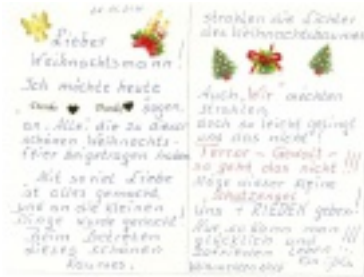 Lieber
Weihnachtsmann!
Ich möchte heute
Danke Danke sagen
an "Alle" die zu dieser
schönen Weihnachts-
feier beigetragen haben
Mit so viel Liebe
ist alles gemacht
und an die kleinen
Dinge wurde gedacht
Beim Betreten
dieses schönen
Raumes,
strahlen die Lichter
des Weihnachtsbaumes
Auch "Wir" möchten
strahlen,
doch so leicht gelingt
uns das nicht!
Terror - Gewalt -
so geht das nicht!!!
Möge dieser kleine
"Schutzengel"
uns FRIEDEN geben!
Nur so kann man
glücklich und
zufrieden leben!!